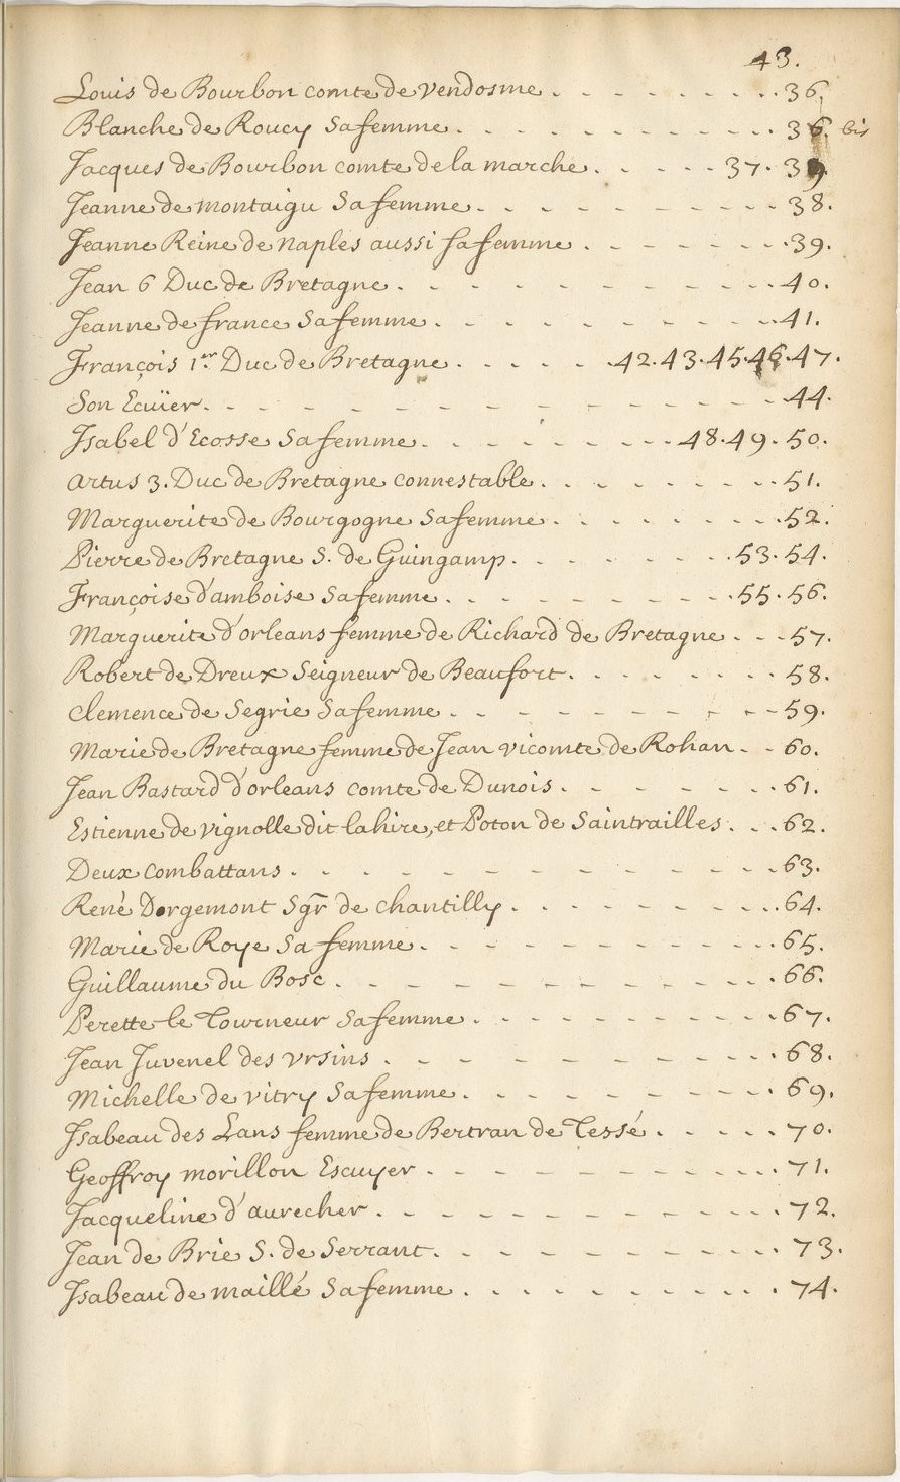 43.
Louis de Bourbon comte de vendosme . . . . . . . . . 36.
Blanche de Roucy Sa femme . . . . . . . . . . 36. bis
Jacques de Bourbon comte de la marche . . . . . 37. 39.
Jeanne de montaigu Sa femme . . . . . . . . . . 38.
Jeanne Reine de Naples aussi sa femme . . . . . . . 39.
Jean 6 Duc de Bretagne . . . . . . . . . . . 40.
Jeanne de france Sa femme . . . . . . . . . . 41.
François 1er. Duc de Bretagne . . . . . . 42. 43. 45. 46. 47.
Son Ecüier . . . . . . . . . . . . . . 44.
Isabel d'Ecosse Sa femme . . . . . . . . 48. 49. 50.
Artus 3. Duc de Bretagne connestable . . . . . . . . 51.
Marguerite de Bourgogne Sa femme . . . . . . . . 52.
Pierre de Bretagne S. de Guingamp . . . . . . . 53. 54.
Françoise d'amboise Sa femme . . . . . . . . . 55. 56.
Marguerite d'orleans femme de Richard de Bretagne . . . 57.
Robert de Dreux Seigneur de Beaufort . . . . . . . . 58.
Clemence de Segrie Sa femme . . . . . . . . . . 59.
Marie de Bretagne femme de Jean vicomte de Rohan . . 60.
Jean Bastard d'orleans comte de Dunois . . . . . . . 61.
Estienne de vignolle dit lahire, et Poton de Saintrailles . . . 62.
Deux combattans . . . . . . . . . . . . . 63.
René Dorgemont Sgr de chantilly . . . . . . . . . 64.
Marie de Roye Sa femme . . . . . . . . . . . 65.
Guillaume du Bosc . . . . . . . . . . . . 66.
Perette le Tourneur Sa femme . . . . . . . . . . 67.
Jean Juvenel des Vrsins . . . . . . . . . . . . 68.
Michelle de vitry Sa femme . . . . . . . . . . 69.
Isabeau des Lans femme de Bertran de Tessé . . . . . 70.
Geoffroy morillon Escuyer . . . . . . . . . . . 71.
Jacqueline d'aurecher . . . . . . . . . . . . 72.
Jean de Brie S. de Serrant . . . . . . . . . . . 73.
Isabeau de maillé Sa femme . . . . . . . . . . 74.